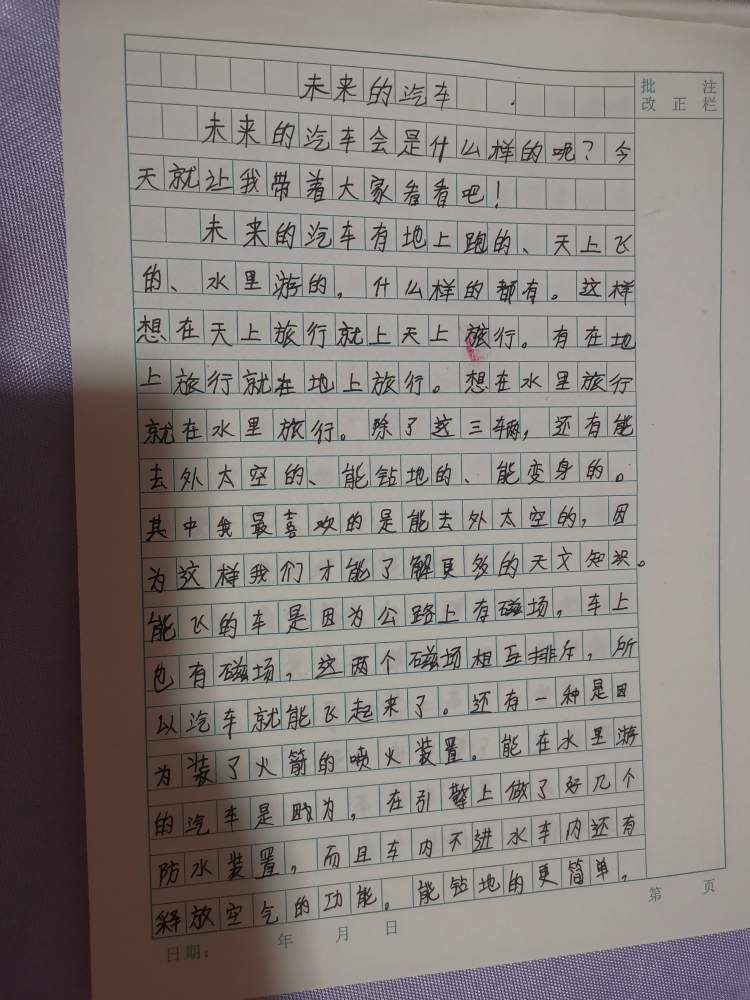 未来的汽车
批 注
改正栏
未来的汽车会是什么样的呢？今
天就让我带着大家看看吧！
未来的汽车有地上跑的、天上飞
的、水里游的，什么样的都有。这样
想在天上旅行就上天上旅行。有在地
上旅行就在地上旅行。想在水里旅行
就在水里旅行。除了这三辆，还有能
去外太空的、能钻地的、能变身的。
其中我最喜欢的是能去外太空的，因
为这样我们才能了解更多的天文知识。
能飞的车是因为公路上有磁场，车上
也有磁场，这两个磁场相互排斥，所
以汽车就能飞起来了。还有一种是因
为装了火箭的喷火装置。能在水里游
的汽车是因为，在引擎上做了好几个
防水装置，而且车内不进水车内还有
释放空气的功能。能钻地的更简单，
第 页
日期： 年 月 日